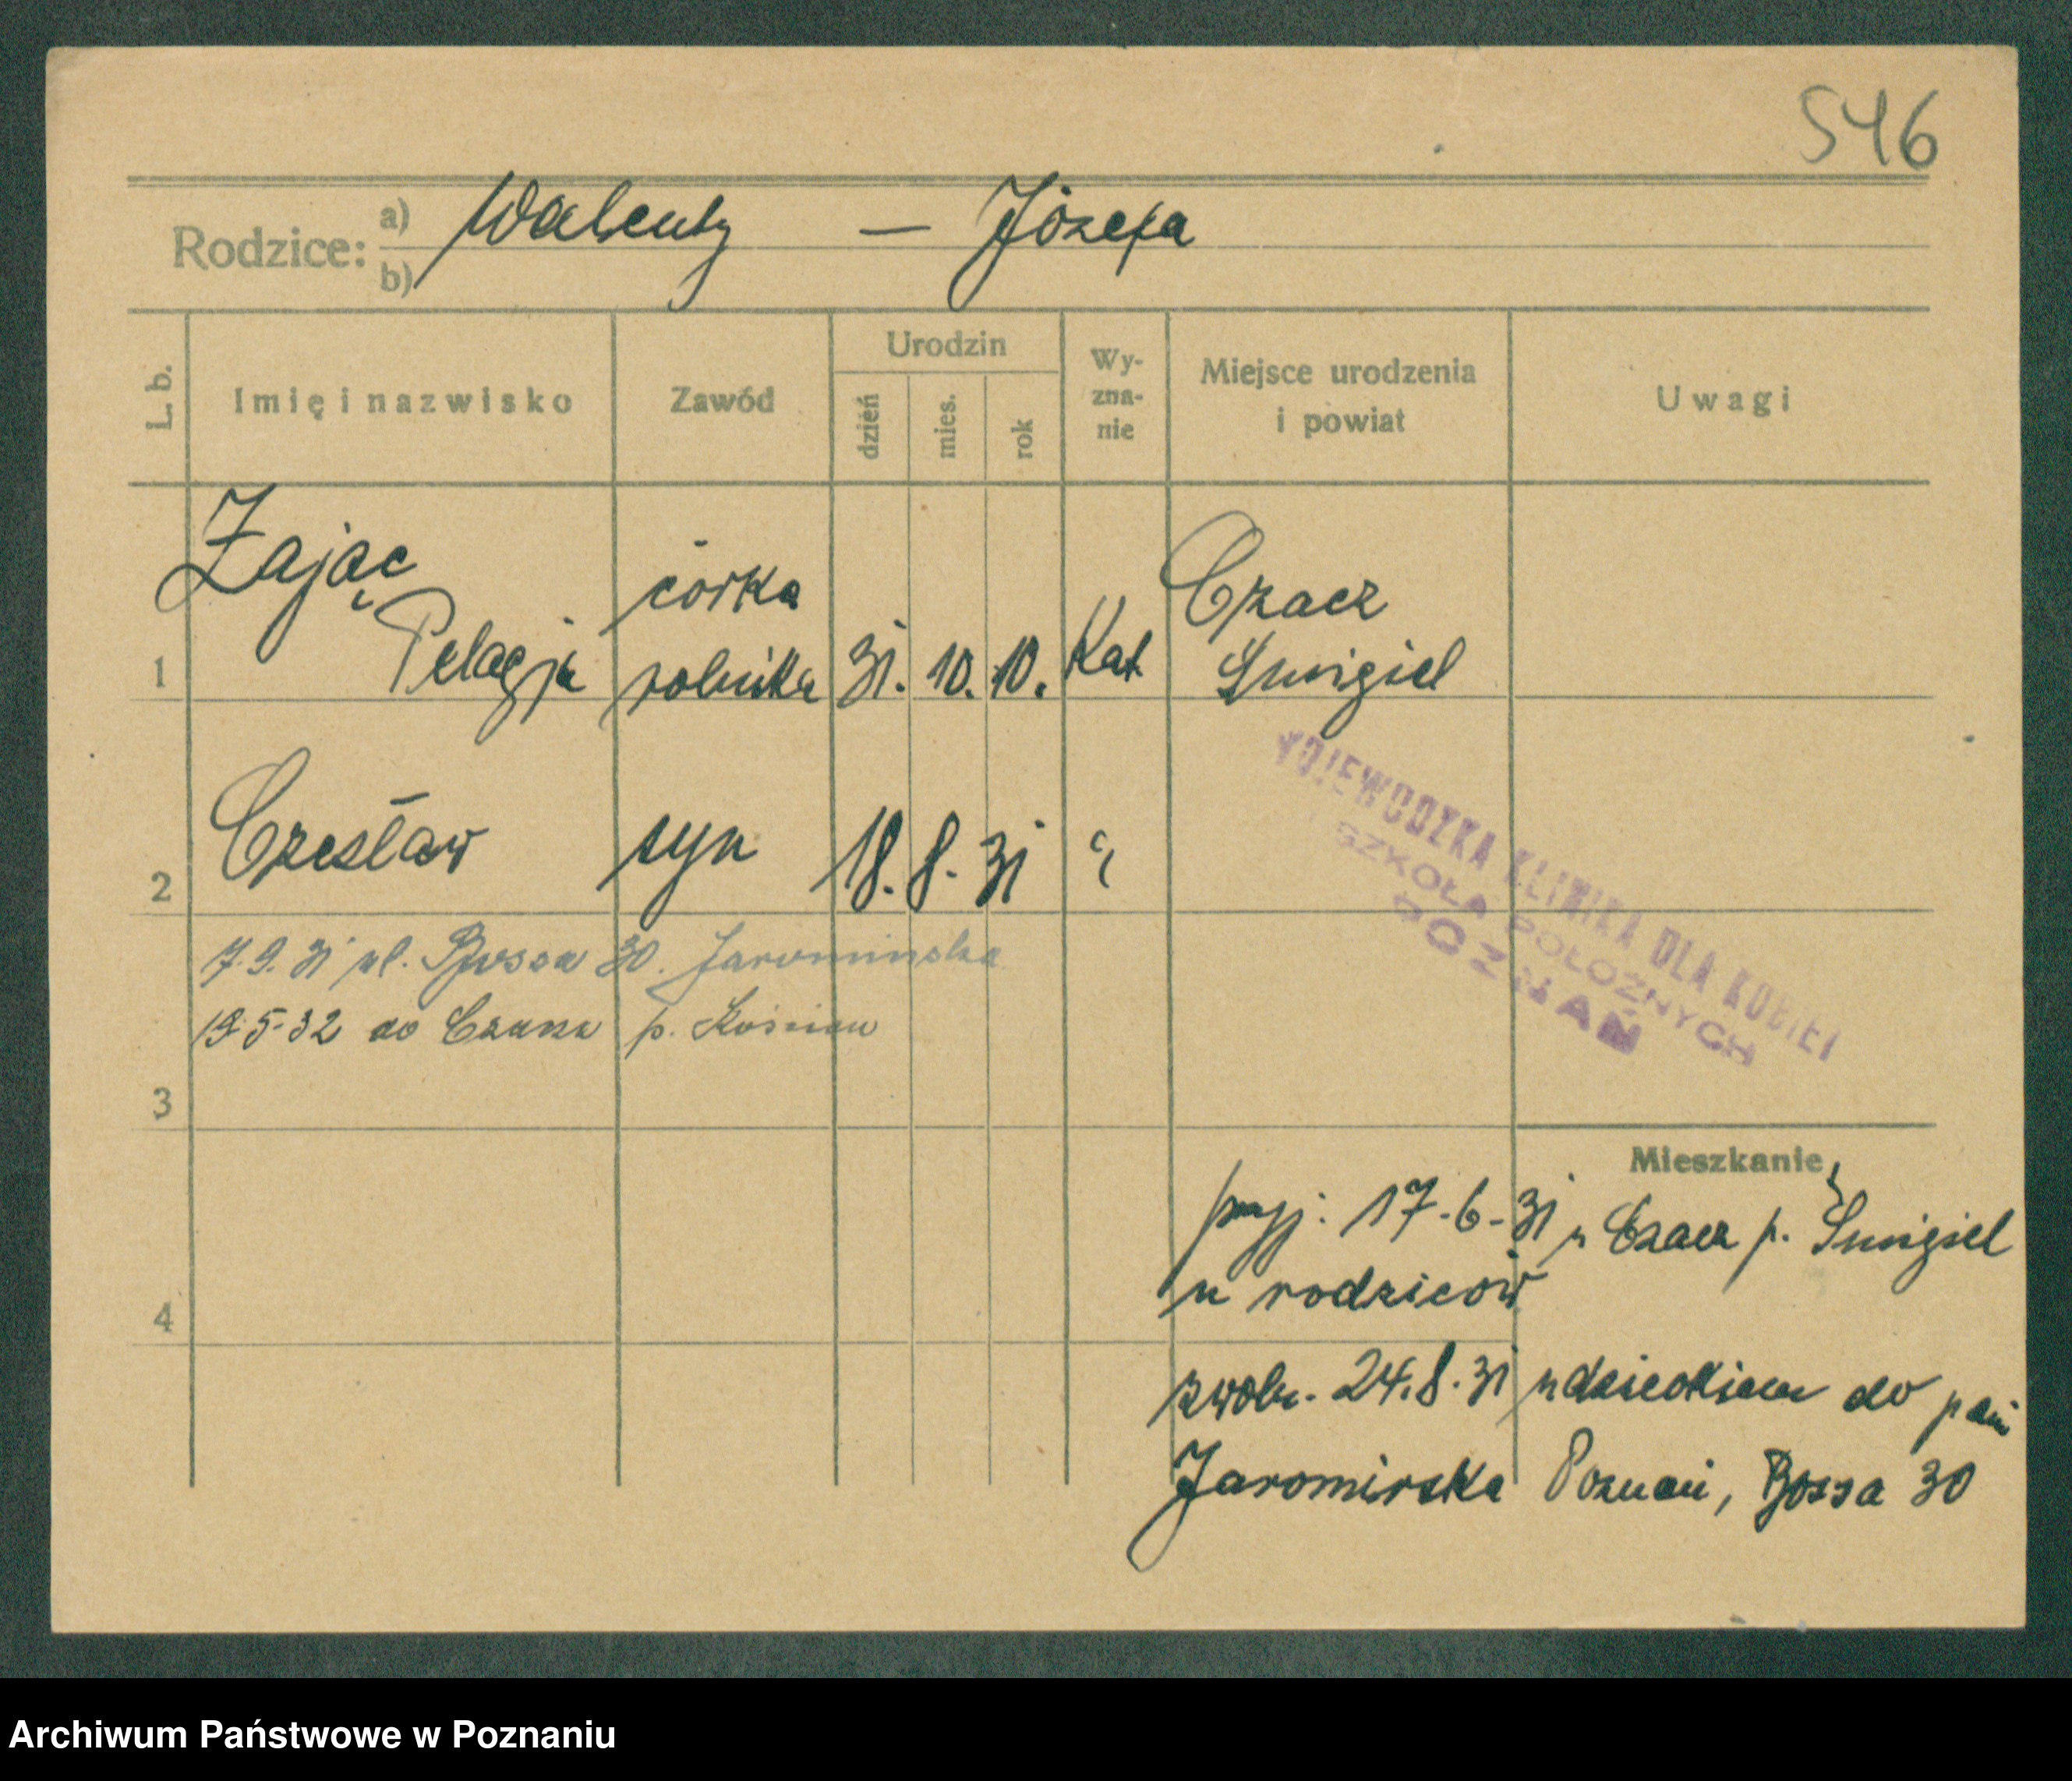 546
Rodzice: a) Walenty — Józefa
b)
L. b.
Imię i nazwisko
Zawód
Urodzin
dzień
mies.
rok
Wy-
zna-
nie
Miejsce urodzenia
i powiat
Uwagi
Zając
Pelagja
córka
rolnika
31. 10. 10.
Kat.
Czacz
Śmigiel
1
Czesław
syn
18. 8. 31
2
WOJEWÓDZKA KLINIKA DLA KOBIET
I SZKOŁA POŁOŻNYCH
POZNAŃ
7.9.31 ul. Bossa 30. Jaromirska
19-5-32 do Czacza p. Kościan
3
Mieszkanie
przyj: 17-6-31 z Czacz p. Śmigiel
u rodziców
4
zwoln. 24.8.31 z dzieckiem do pani
Jaromirska Poznań, Bossa 30
Archiwum Państwowe w Poznaniu